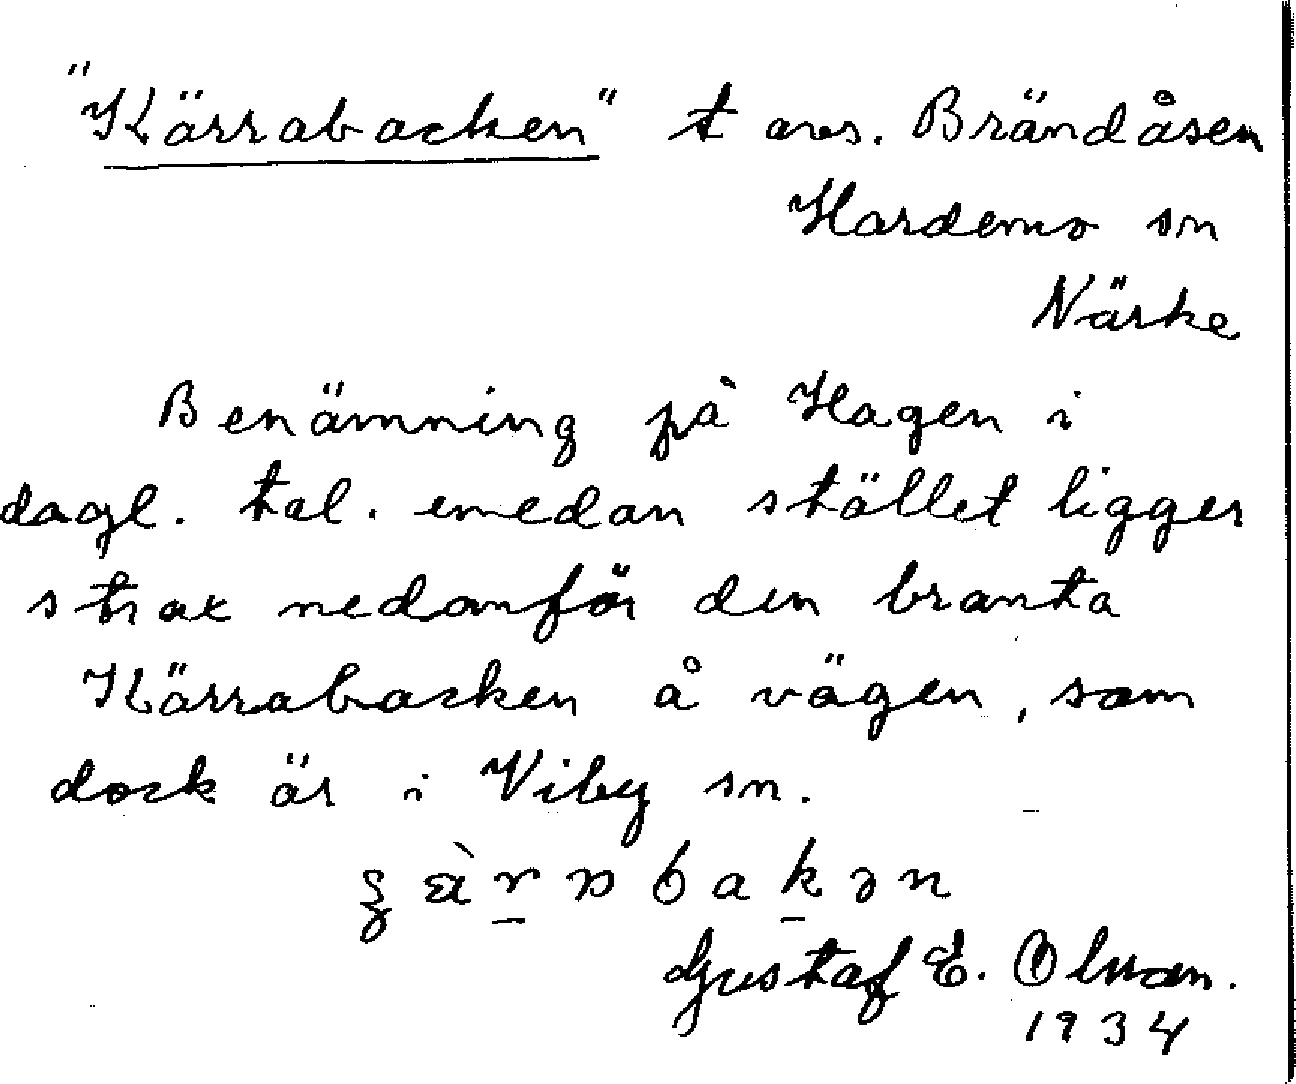 "Kärrabacken" t avs. Brändåsen
Hardemo sn
Närke
Benämning på Hagen i
dagl. tal. emedan stället ligger
strax nedanför den branta
Kärrabacken å vägen, som
dock är i Viby sn.
Gustaf E. Olman.
1934